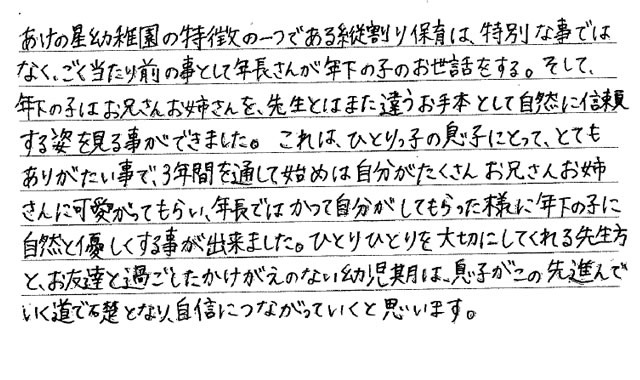 あけの星幼稚園の特徴の一つである縦割り保育は、特別な事では
なく、ごく当たり前の事として年長さんが年下の子のお世話をする。そして、
年下の子はお兄さんお姉さんを、先生とはまた違うお手本として自然に信頼
する姿を見る事ができました。これは、ひとりっ子の息子にとって、とても
ありがたい事で、3年間を通して始めは自分がたくさんお兄さんお姉
さんに可愛がってもらい、年長ではかつて自分がしてもらった様に年下の子に
自然と優しくする事が出来ました。ひとりひとりを大切にしてくれる先生方
と、お友達と過ごしたかけがえのない幼児期は、息子がこの先進んで
いく道で礎となり、自信につながっていくと思います。